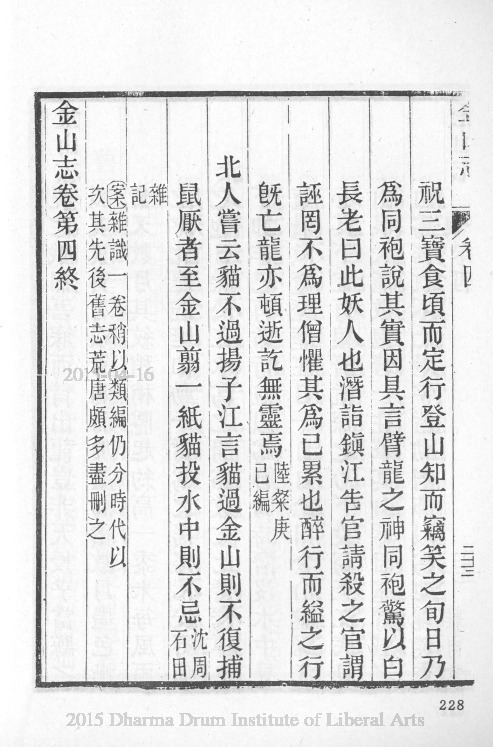 金山志 卷四 二十三
祝三寶食頃而定行登山知而竊笑之旬日乃
爲同袍說其實因具言臂龍之神同袍驚以白
長老曰此妖人也潛詣鎭江吿官請殺之官謂
誣罔不爲理僧懼其爲已累也醉行而縊之行
旣亡龍亦頓逝訖無靈焉陸粲庚
己編
北人嘗云貓不過揚子江言貓過金山則不復捕
鼠厭者至金山翦一紙貓投水中則不忌沈周
石田
雜
記
案雜識一卷稍以類編仍分時代以
次其先後舊志荒唐頗多盡刪之
金山志卷第四終
228
2015 Dharma Drum Institute of Liberal Arts